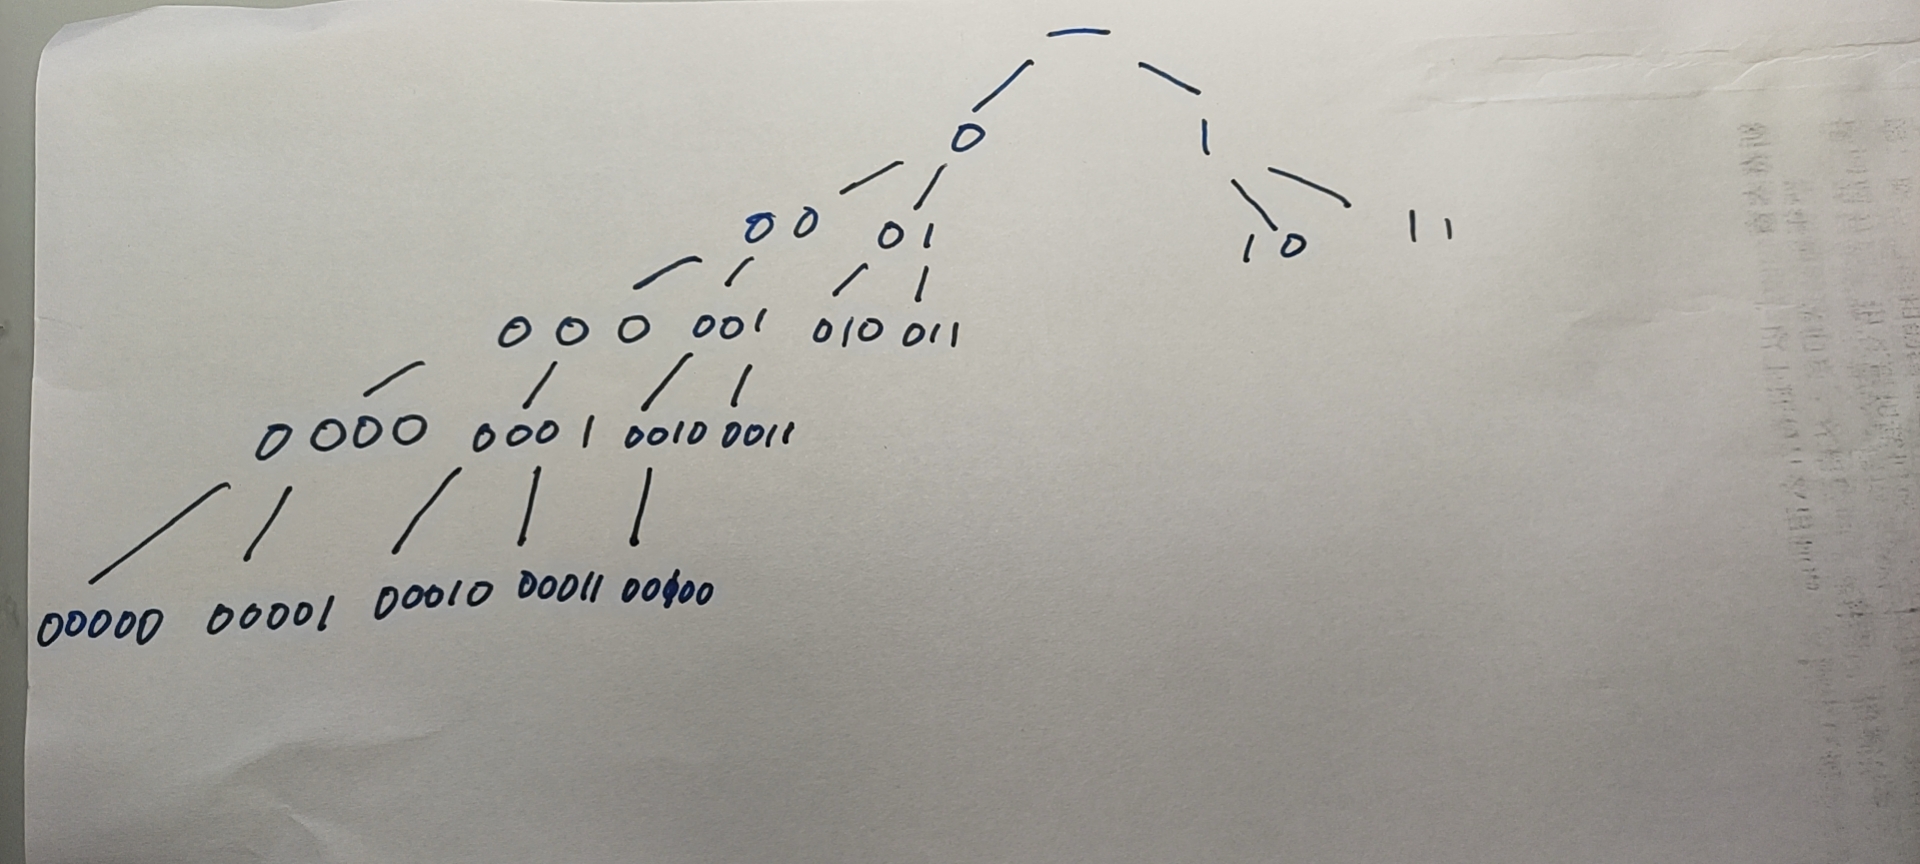 —
0 1
00 01 10 11
000 001 010 011
0000 0001 0010 0011
00000 00001 00010 00011 00100